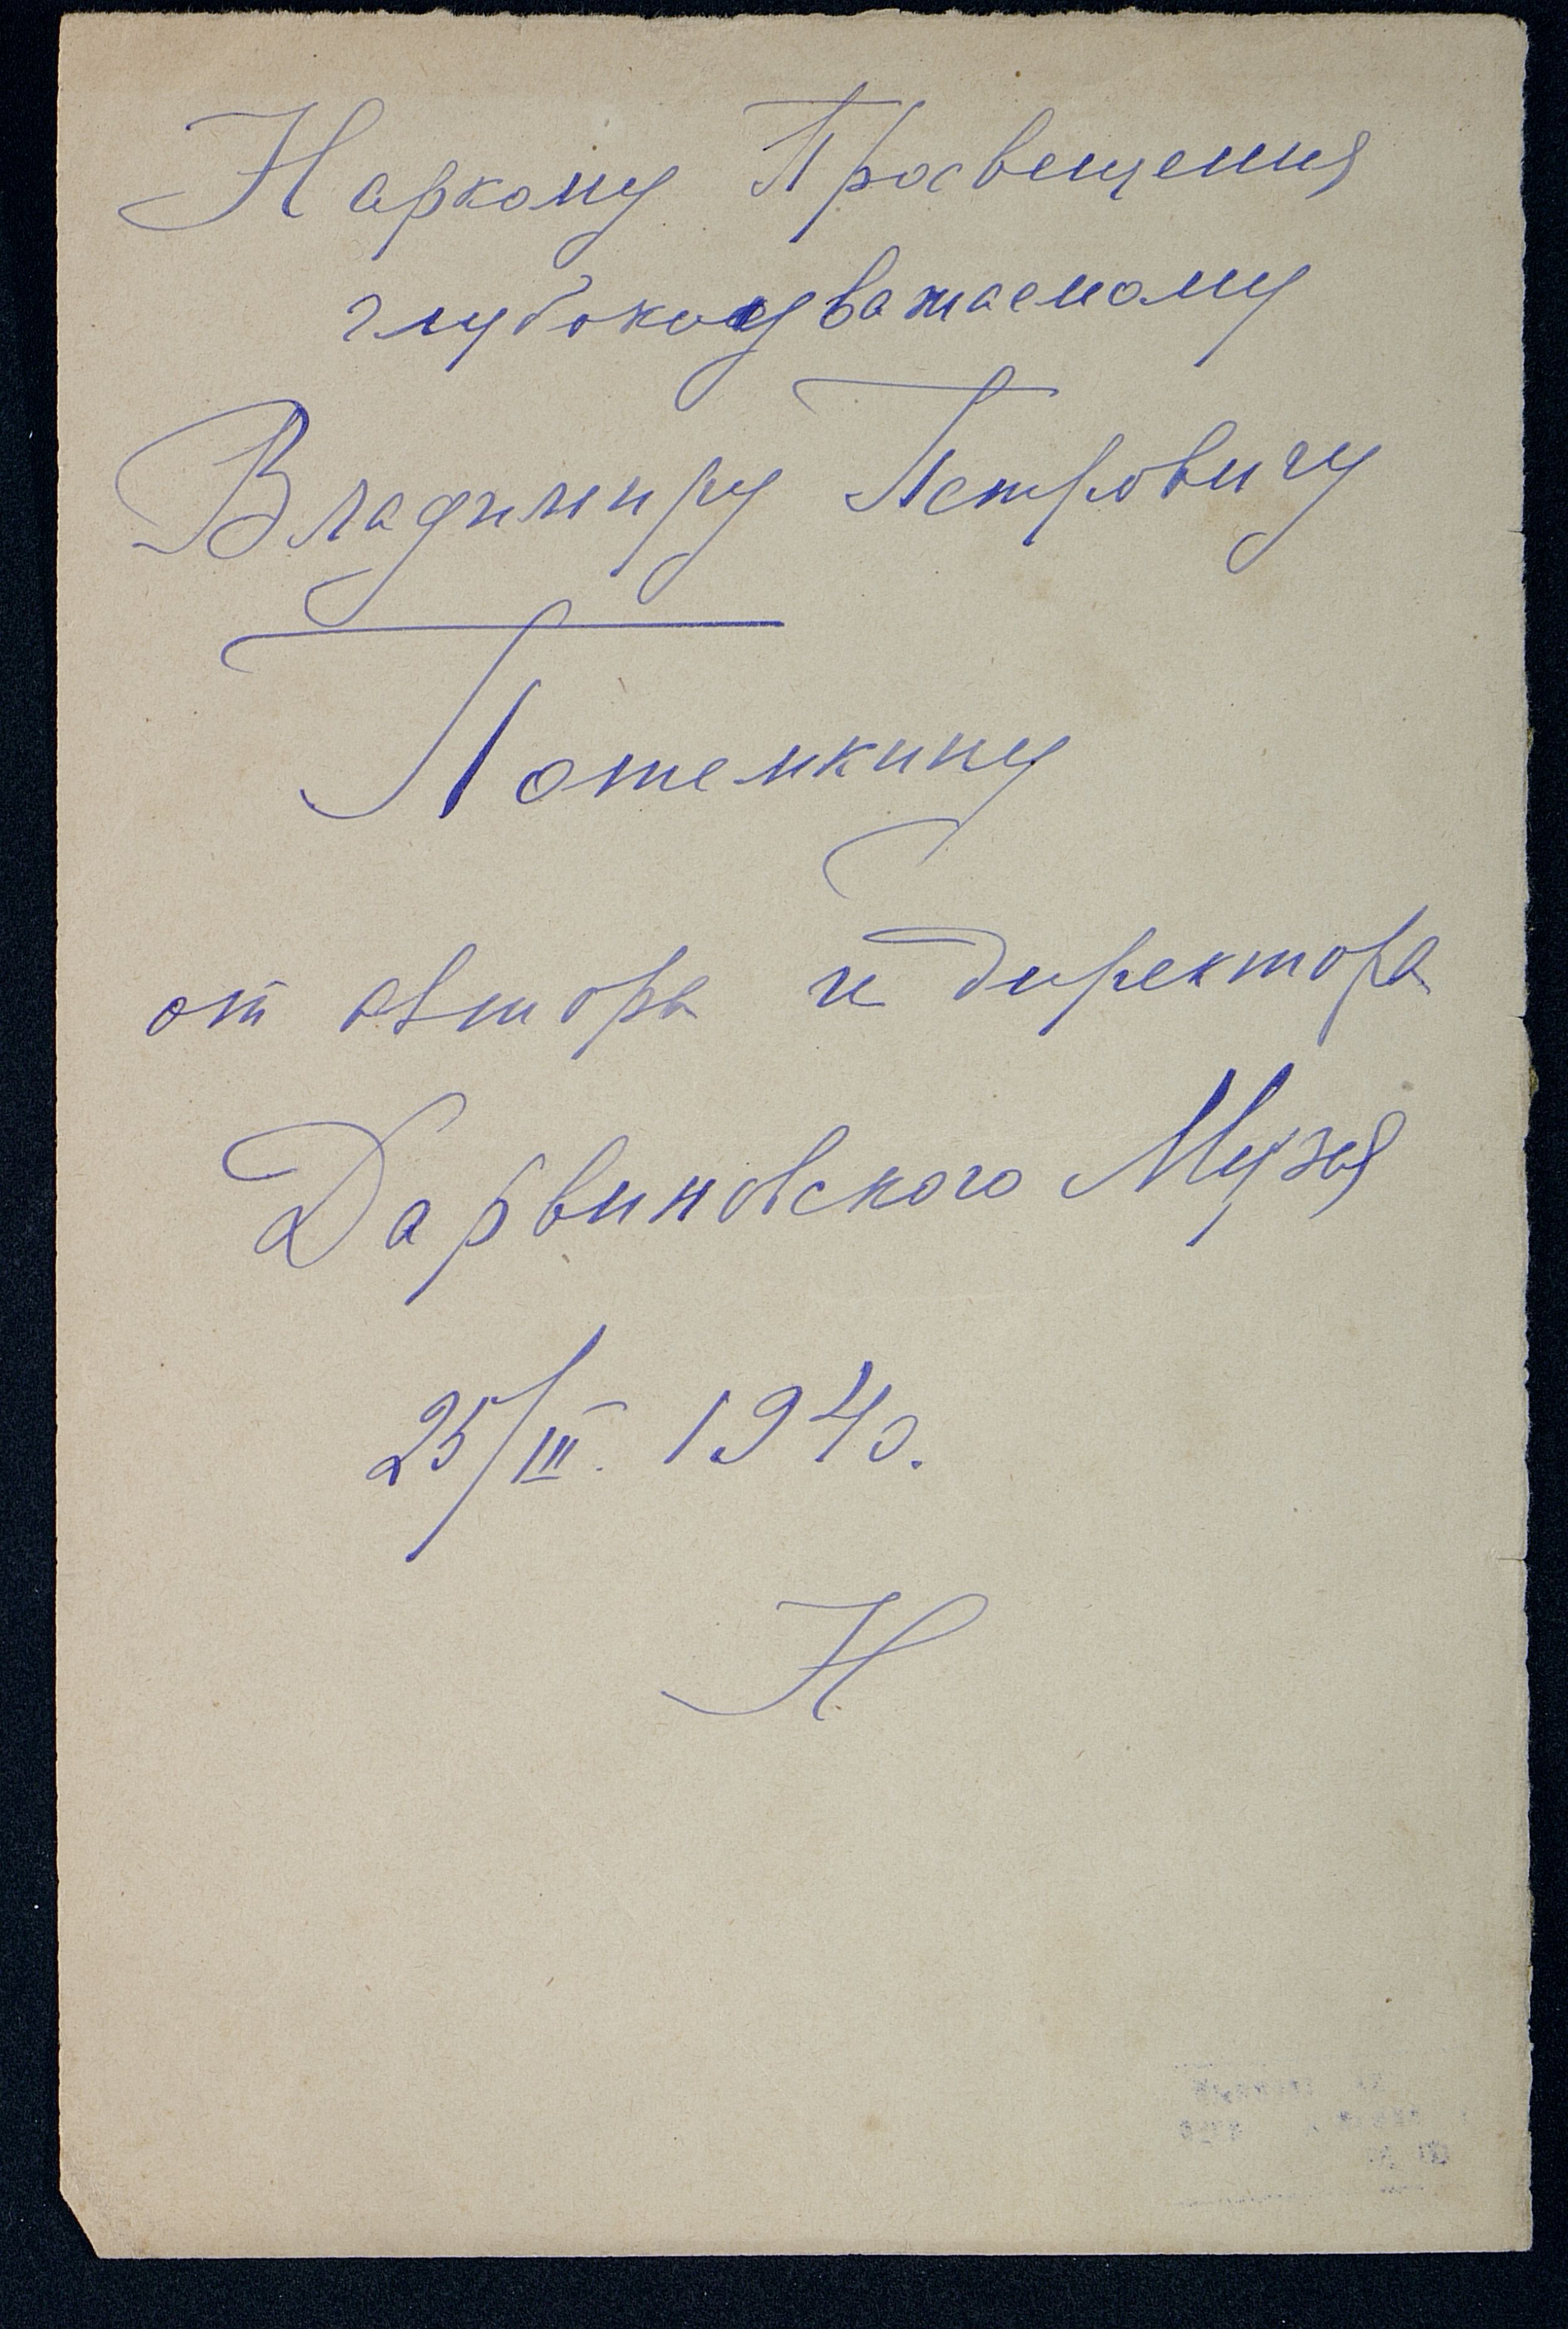 Наркому Просвещения
глубокоуважаемому
Владимиру Петровичу
Потемкину
от автора и директора
Дарвиновского Музея
25/III. 1940.
Н